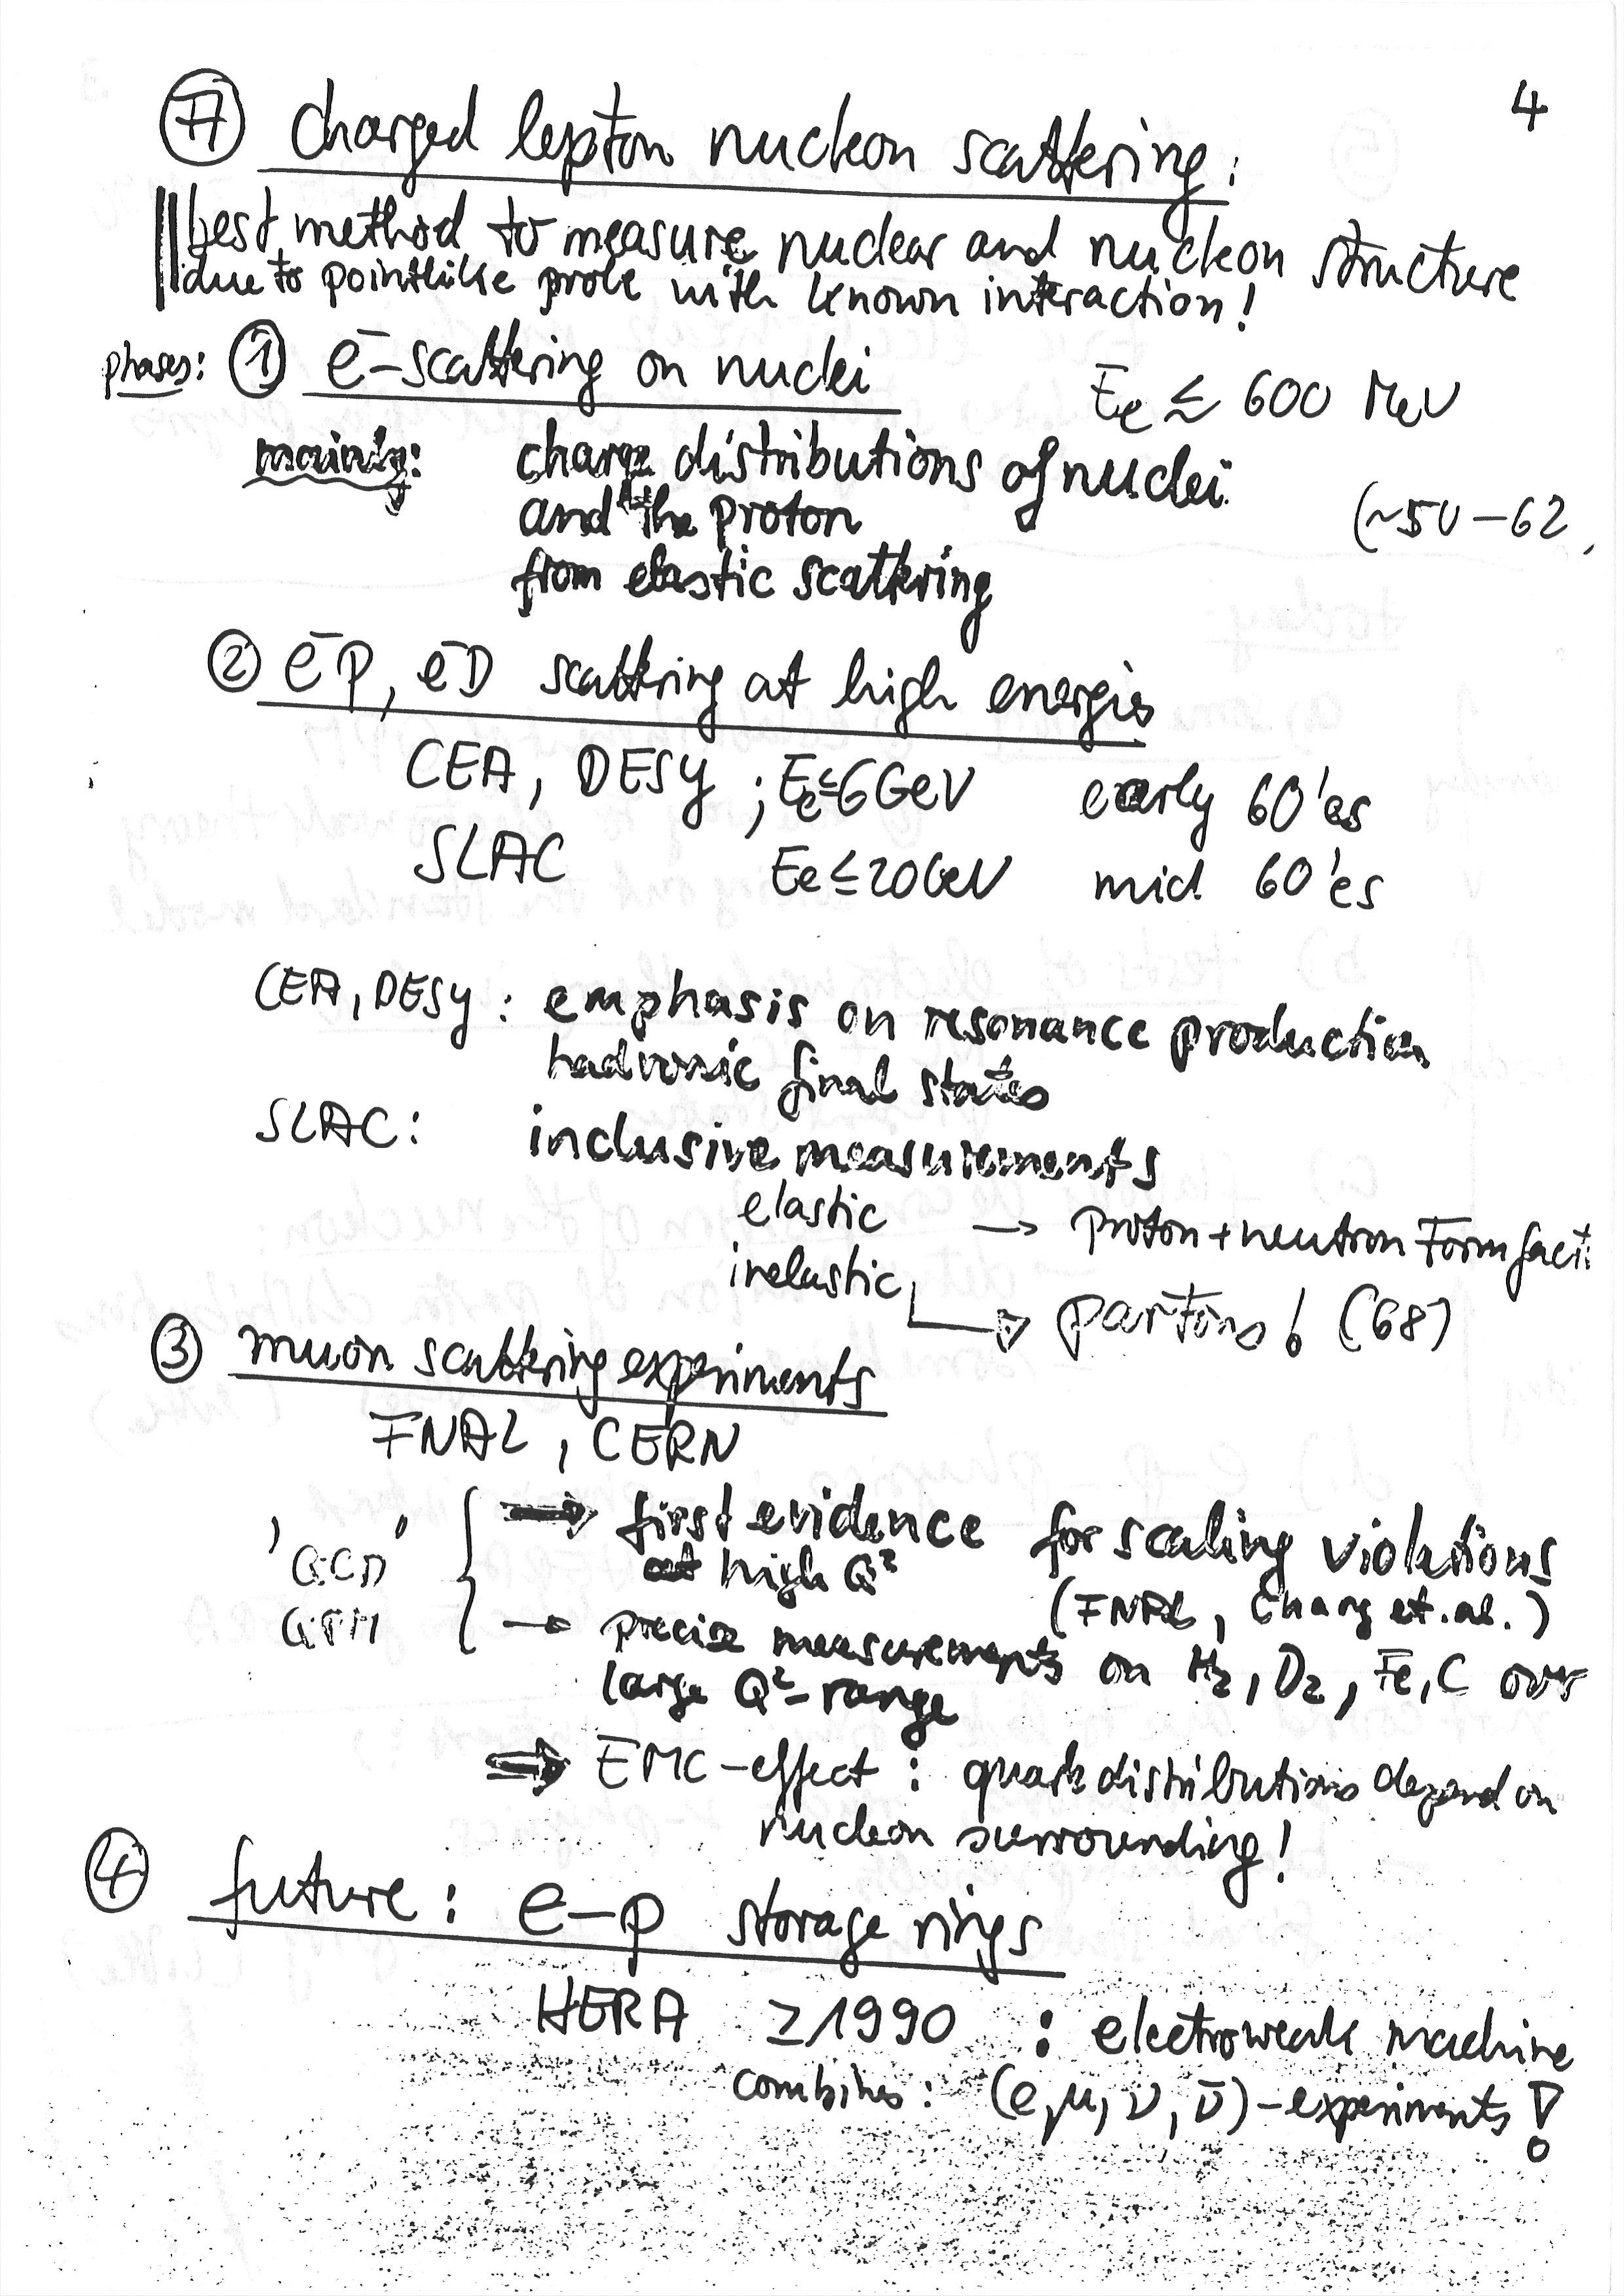 4
A charged lepton nucleon scattering:
best method to measure nuclear and nucleon structure
due to pointlike probe with known interaction!
phases: ① e⁻-scattering on nuclei
E_e ≲ 600 MeV
mainly: charge distributions of nuclei
and the proton
(~50-62,
from elastic scattering
② e⁻p, e⁻D scattering at high energies
CEA, DESY ; E_e ≤ 6 GeV early 60'es
SLAC E_e ≤ 20 GeV mid 60'es
CEA, DESY: emphasis on resonance production
hadronic final states
SLAC: inclusive measurements
elastic → proton + neutron Formfact.
inelastic → partons! (68)
③ muon scattering experiments
FNAL, CERN
⇒ first evidence for scaling violations
'QCD' at high Q²
(FNAL, Chang et. al.)
QPM → precise measurements on H₂, D₂, Fe, C over
large Q²-range
⇒ EMC-effect: quark distributions depend on
nucleon surrounding!
④ future: e-p storage rings
HERA ≥1990 : electroweak machine
combines: (e, μ, ν, ν̄)-experiments!